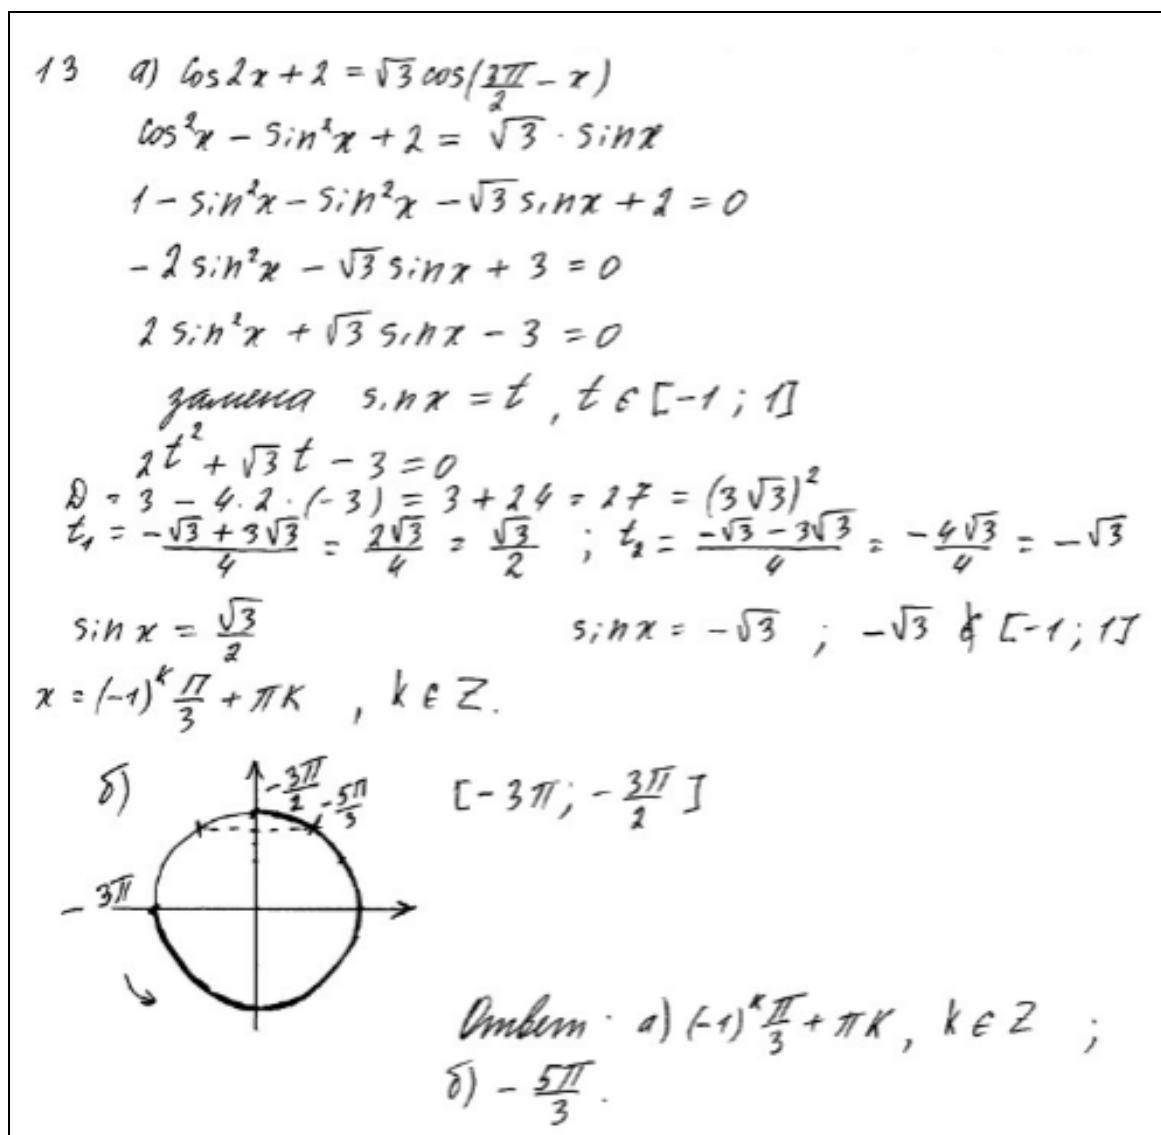 13 а) cos2x + 2 = √3 cos(3π/2 − x)
cos²x − sin²x + 2 = √3 · sinx
1 − sin²x − sin²x − √3 sinx + 2 = 0
−2 sin²x − √3 sinx + 3 = 0
2 sin²x + √3 sinx − 3 = 0
замена sinx = t , t ∈ [−1 ; 1]
2t² + √3 t − 3 = 0
D = 3 − 4·2·(−3) = 3 + 24 = 27 = (3√3)²
t₁ = (−√3 + 3√3)/4 = 2√3/4 = √3/2 ; t₂ = (−√3 − 3√3)/4 = −4√3/4 = −√3
sinx = √3/2 sinx = −√3 ; −√3 ∉ [−1 ; 1]
x = (−1)^k π/3 + πk , k ∈ Z.
б) −3π/2 −5π/3 [−3π ; −3π/2]
−3π
Ответ: а) (−1)^k π/3 + πk, k ∈ Z ;
б) −5π/3.